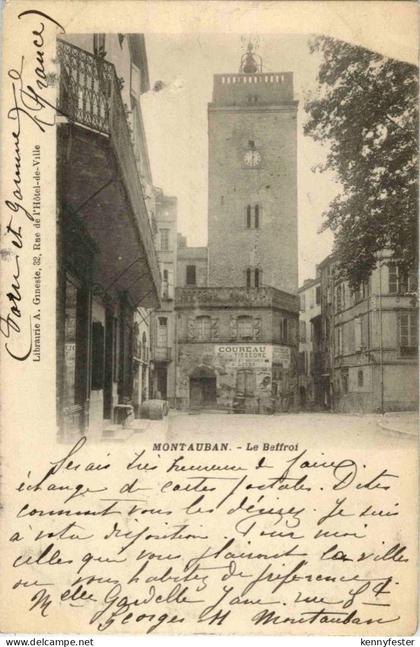 (Tarn et Garonne) (France)
Librairie A. Gineste, 32, Rue de l'Hôtel-de-Ville
COUREAU
TISSEUR
MONTAUBAN. - Le Beffroi
Serais très heureuse de faire
échange de cartes postales. Dites
comment vous les désirez. Je suis
à votre disposition. Pour moi
celles que vous plairont la villes
ou vous habitez de préférence
Melle Gardelle Jane. rue St
Georges 11 Montauban
delcampe.net
kennyfester